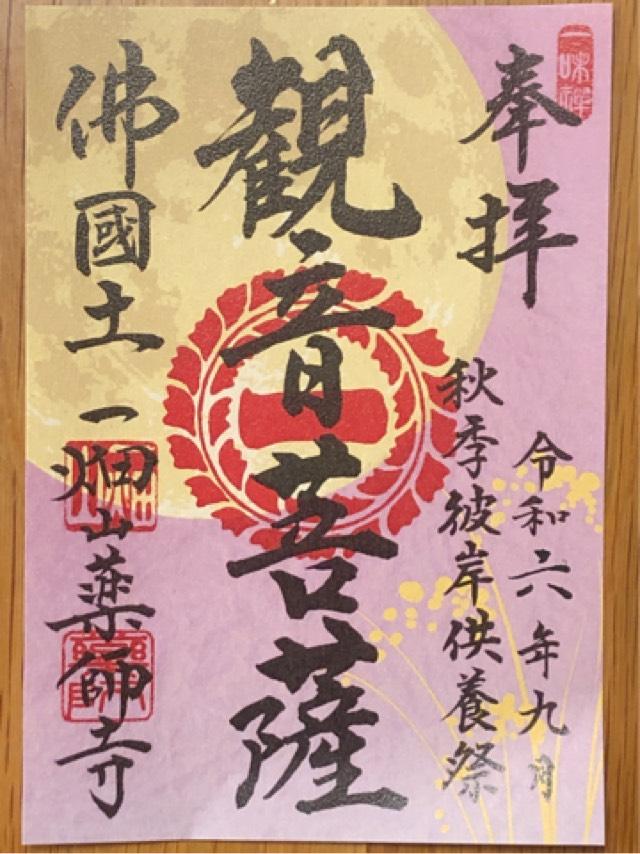 一味禅
奉拝
令和六年九月
秋季彼岸供養祭
観音菩薩
佛國土
一畑山薬師寺